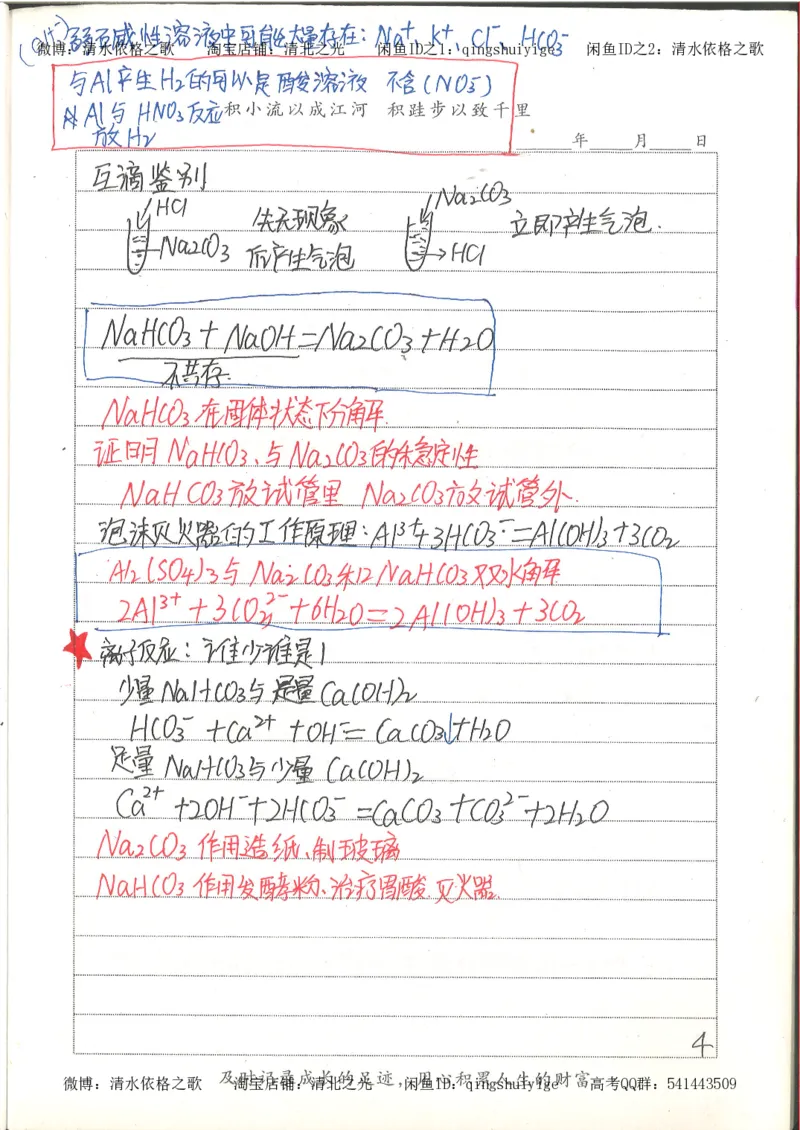 (OH⁻) 弱碱性溶液中可能大量存在：Na⁺、K⁺、Cl⁻、HCO₃⁻
微博：清水依格之歌 淘宝店铺：清北之光 闲鱼ID之1：qingshuiyige 闲鱼ID之2：清水依格之歌
与Al产生H₂的可以是酸溶液 不含(NO₃⁻)
Al与HNO₃反应
积小流以成江河 积跬步以致千里
放H₂
年 月 日
互滴鉴别
HCl
Na₂CO₃
先无现象
后产生气泡
Na₂CO₃
HCl
立即产生气泡.
NaHCO₃+NaOH=Na₂CO₃+H₂O
不共存.
NaHCO₃在固体状态下分解.
证明NaHCO₃与Na₂CO₃的稳定性
NaHCO₃放试管里 Na₂CO₃放试管外.
泡沫灭火器的工作原理：Al³⁺+3HCO₃⁻=Al(OH)₃+3CO₂
Al₂(SO₄)₃与Na₂CO₃和NaHCO₃双水解
2Al³⁺+3CO₃²⁻+6H₂O=2Al(OH)₃+3CO₂
离子反应：谁少谁是1
少量NaHCO₃与足量Ca(OH)₂
HCO₃⁻+Ca²⁺+OH⁻=CaCO₃↓+H₂O
足量NaHCO₃与少量Ca(OH)₂
Ca²⁺+2OH⁻+2HCO₃⁻=CaCO₃+CO₃²⁻+2H₂O
Na₂CO₃作用造纸、制玻璃
NaHCO₃作用发酵粉、治疗胃酸.灭火器.
4
及时记录成长的足迹，用心积累人生的财富
微博：清水依格之歌 淘宝店铺：清北之光 闲鱼ID：qingshuiyige 高考QQ群：541443509